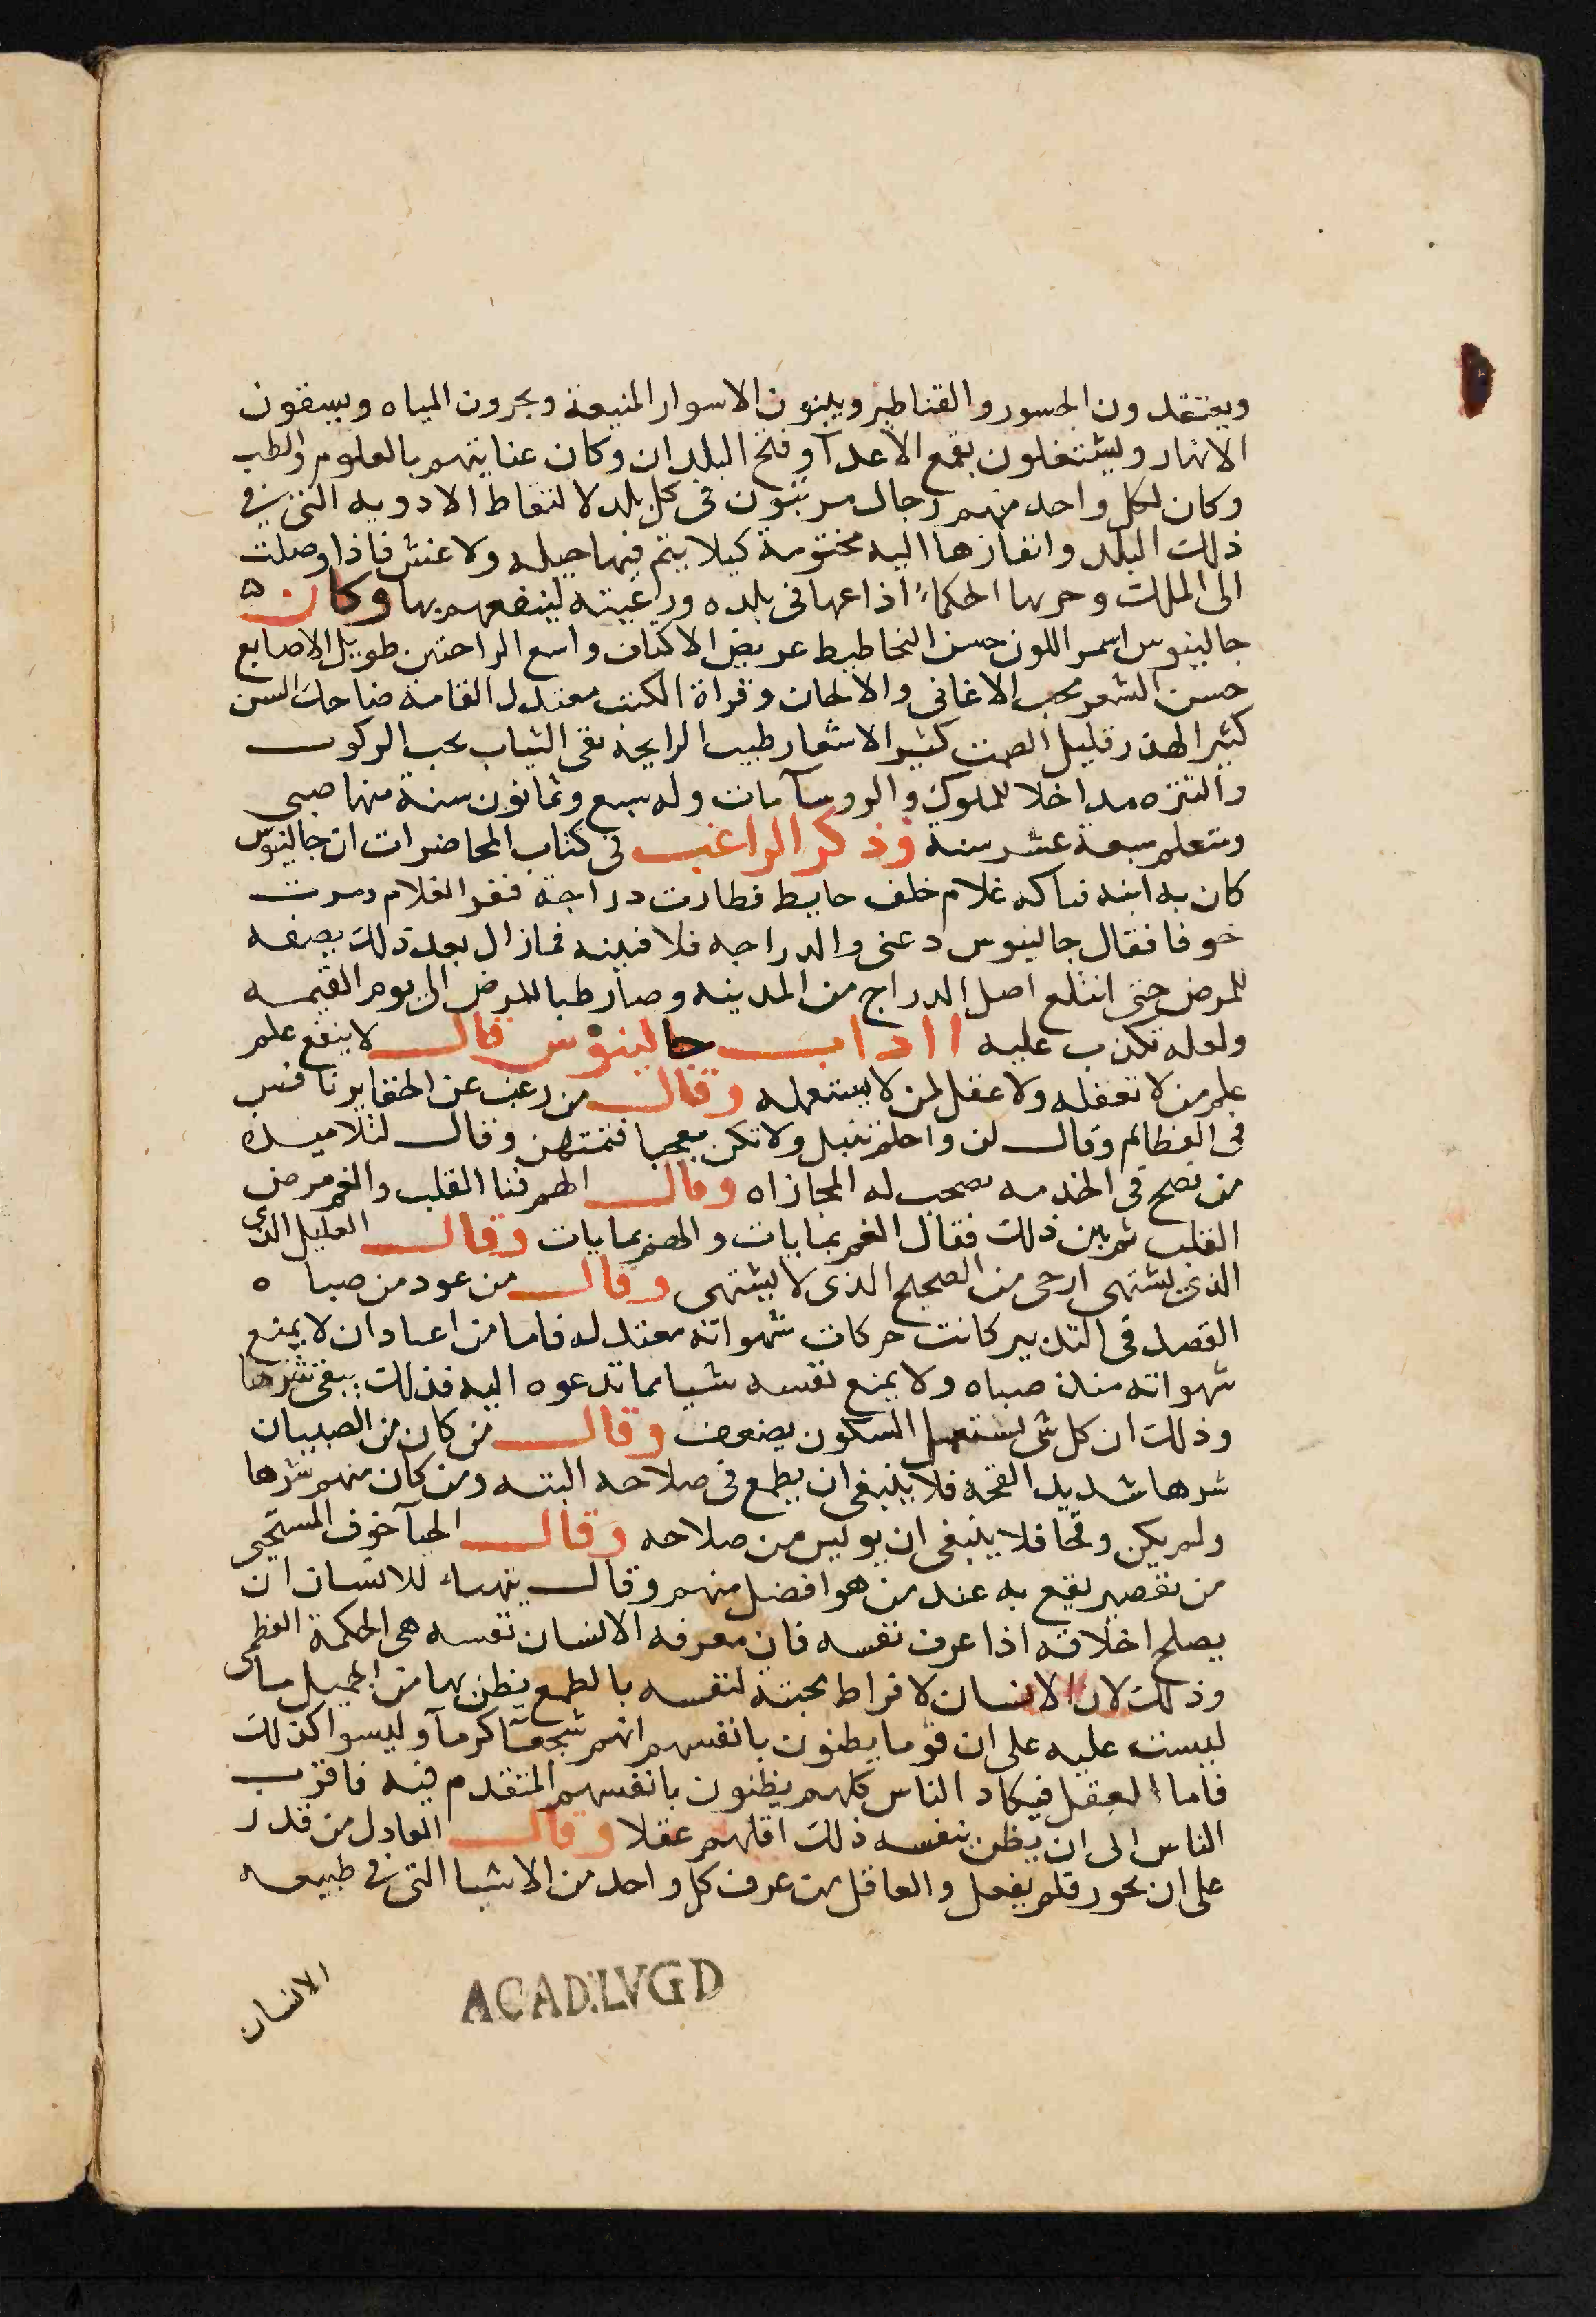 ويعتقدون الجسور والقناطير ويبنون الاسوار المنيعة ويجرون المياه ويسقون
الانهار ويشتغلون بقمع الاعدآ وفتح البلدان وكان عنايتهم بالعلوم والطب
وكان لكل واحد منهم رجال مرتبون في كل بلد لالتقاط الادويه التي في
ذلك البلد وانفاذها اليه مختومة كيلا يتم فيها حيله ولا غش فاذا وصلت
الى الملك وجربها الحكماء اذاعها في بلده ورعيته لينفعهم بها وكان
جالينوس اسمر اللون حسن التخاطيط عريض الاكتاف واسع الراحتين طويل الاصابع
حسن الشعر محب الاغاني والالحان وقراة الكتب معتدل القامة ضاحك السن
كثير الهذر قليل الصمت كثير الاشعار طيب الرايحة نقى الثياب يحب الركوب
والتنزه مداخلا للملوك والروسآ مات وله سبع وثمانون سنة منها صبي
ومتعلم سبعة عشر سنة وذكر الراغب في كتاب المحاضرات ان جالينوس
كان به ابنه فناكه غلام خلف حايط فطارت دراجة ففر الغلام ومرت
خوفا فقال جالينوس دعنى والدراجه فلافنينه فمازال بعد ذلك يصفه
للمرض حتى انقلع اصل الدراج من المدينه وصار طبا للمرض الى يوم القيمه
ولعله تكذب عليه ااداب جالينوس قال لا ينفع علم
علم من لا تعقله ولا عقل لمن لا يستعمله وقال من رغب عن الحقاير نافس
في العظائم وقال لن واحلم تنبل ولا تكن معجبا فتمتهن وقال لتلاميذه
من نصح في الخدمه نصحب له المجازاه وقال الهم فنا القلب والغم مرض
القلب ثم بين ذلك فقال الغم بمايات والهم بمايات وقال العليل الذي
الذي يشتهى ارجى من الصحيح الذي لا يشتهى وقال من عود من صبا ه
القصد في التدبير كانت حركات شهواته معتدله فاما من اعتاد ان لا يمنع
شهواته منذ صباه ولا يمنع نفسه شيا مما تدعوه اليه فذلك يبقى شرها
وذلك ان كل شى يستعمل السكون يضعف وقال من كان من الصبيان
شرها شديد القحه فلا ينبغى ان يطمع في صلاحه البته ومن كان منهم شرها
ولم يكن وقحا فلا ينبغى ان يوليس من صلاحه وقال الحيآ خوف المستحيى
من تقصير يقع به عند من هو افضل منهم وقال يتهياء للانسان ان
يصلح اخلاقه اذا عرف نفسه فان معرفه الانسان نفسه هى الحكمة العظمى
وذلك لان الانسان لافراط محبته لنفسه بالطمع يظن بها من الجميل ما
ليست عليه على ان قوما يظنون بانفسهم انهم شجعآ كرمآ وليسوا كذلك
فاما العقل فيكاد الناس كلهم يظنون بانفسهم المتقدم فيه فاقرب
الناس الى ان يظن بنفسه ذلك اقلهم عقلا وقال العادل من قدر
على ان يجور فلم يفعل والعاقل من عرف كل واحد من الاشيا التى في طبيعه
الانسان
ACAD.LVGD